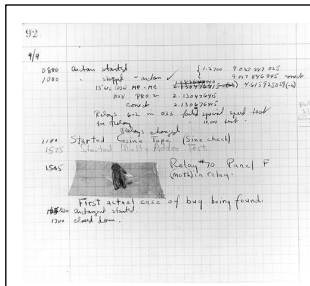 92
9/9
0800 Antan started
1000 " stopped - antan ✓
13" uc (032) MP-MC
033 PRO 2 2.130476415
correct 2.130676415
Relays 6-2 in 033 failed special speed test
in Relay " test.
Relays changed
1100 Started Cosine Tape (Sine check)
1525 Started Multi Adder Test.
1545 Relay #70 Panel F
(moth) in relay.
First actual case of bug being found.
antangent started.
1700 closed down.